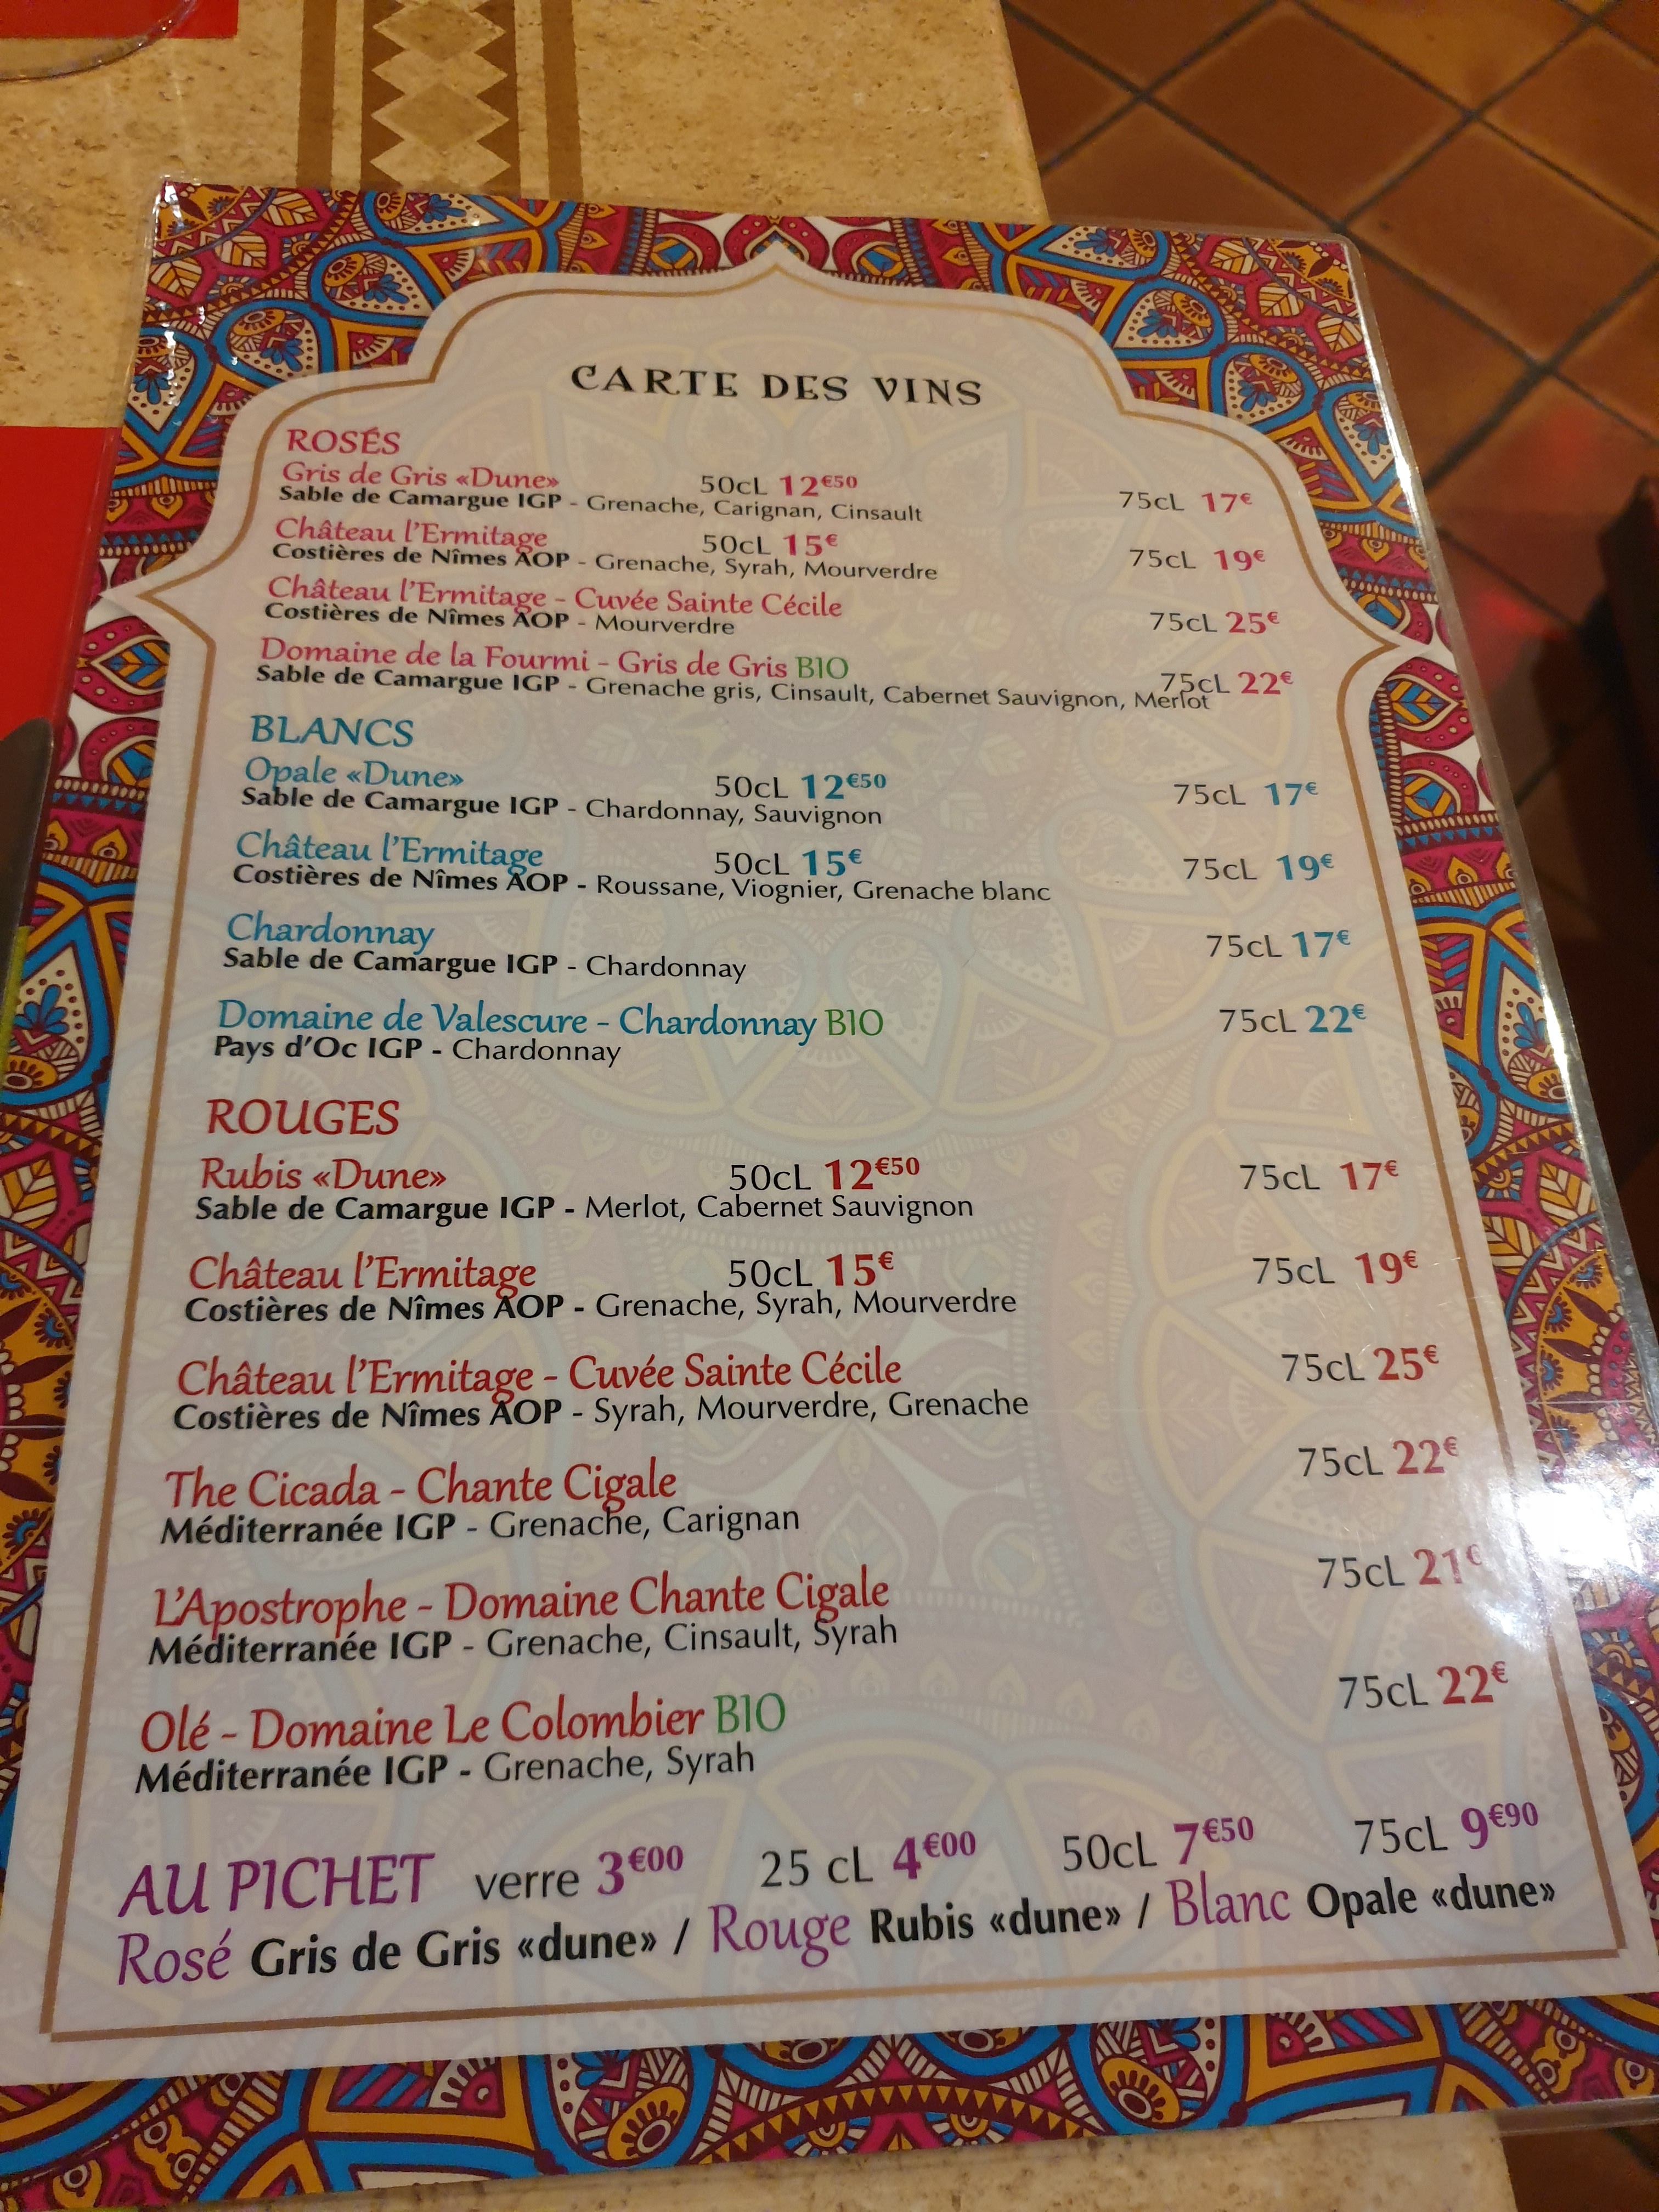 CARTE DES VINS
ROSÉS
Gris de Gris «Dune» 50cL 12€50 75cL 17€
Sable de Camargue IGP - Grenache, Carignan, Cinsault
Château l'Ermitage 50cL 15€ 75cL 19€
Costières de Nîmes AOP - Grenache, Syrah, Mourverdre
Château l'Ermitage - Cuvée Sainte Cécile 75cL 25€
Costières de Nîmes AOP - Mourverdre
Domaine de la Fourmi - Gris de Gris BIO 75cL 22€
Sable de Camargue IGP - Grenache gris, Cinsault, Cabernet Sauvignon, Merlot
BLANCS
Opale «Dune» 50cL 12€50 75cL 17€
Sable de Camargue IGP - Chardonnay, Sauvignon
Château l'Ermitage 50cL 15€ 75cL 19€
Costières de Nîmes AOP - Roussane, Viognier, Grenache blanc
Chardonnay 75cL 17€
Sable de Camargue IGP - Chardonnay
Domaine de Valescure - Chardonnay BIO 75cL 22€
Pays d'Oc IGP - Chardonnay
ROUGES
Rubis «Dune» 50cL 12€50 75cL 17€
Sable de Camargue IGP - Merlot, Cabernet Sauvignon
Château l'Ermitage 50cL 15€ 75cL 19€
Costières de Nîmes AOP - Grenache, Syrah, Mourverdre
Château l'Ermitage - Cuvée Sainte Cécile 75cL 25€
Costières de Nîmes AOP - Syrah, Mourverdre, Grenache
The Cicada - Chante Cigale 75cL 22€
Méditerranée IGP - Grenache, Carignan
L'Apostrophe - Domaine Chante Cigale 75cL 21€
Méditerranée IGP - Grenache, Cinsault, Syrah
Olé - Domaine Le Colombier BIO 75cL 22€
Méditerranée IGP - Grenache, Syrah
AU PICHET verre 3€00 25 cL 4€00 50cL 7€50 75cL 9€90
Rosé Gris de Gris «dune» / Rouge Rubis «dune» / Blanc Opale «dune»